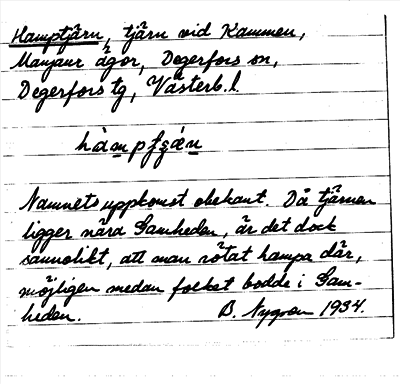 Hamptjärn, tjärn vid Kammen,
Manjaur ägor, Degerfors sn,
Degerfors tg, Västerb. l.
hàmpfǥǽn
Namnets uppkomst obekant. Då tjärnen
ligger nära Gamheden, är det dock
sannolikt, att man rötat hampa där,
möjligen medan folket bodde i Gam-
heden. B. Nygren 1934.